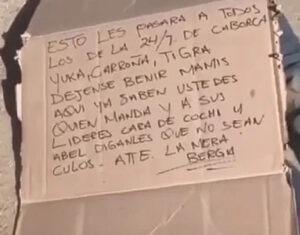 ESTO LES PASARA A TODOS
LOS DE LA 24/7. DE CABORCA
YUKA, GARROÑA, TIGRA
DEJENSE BENIR MANTIS
AQUI YA SABEN USTEDES
QUIEN MANDA Y A SUS
LIDERES CARA DE COCHI Y
ABEL DIGANLES QUE NO SEAN
CULOS. ATTE. LA MERA
BERGA